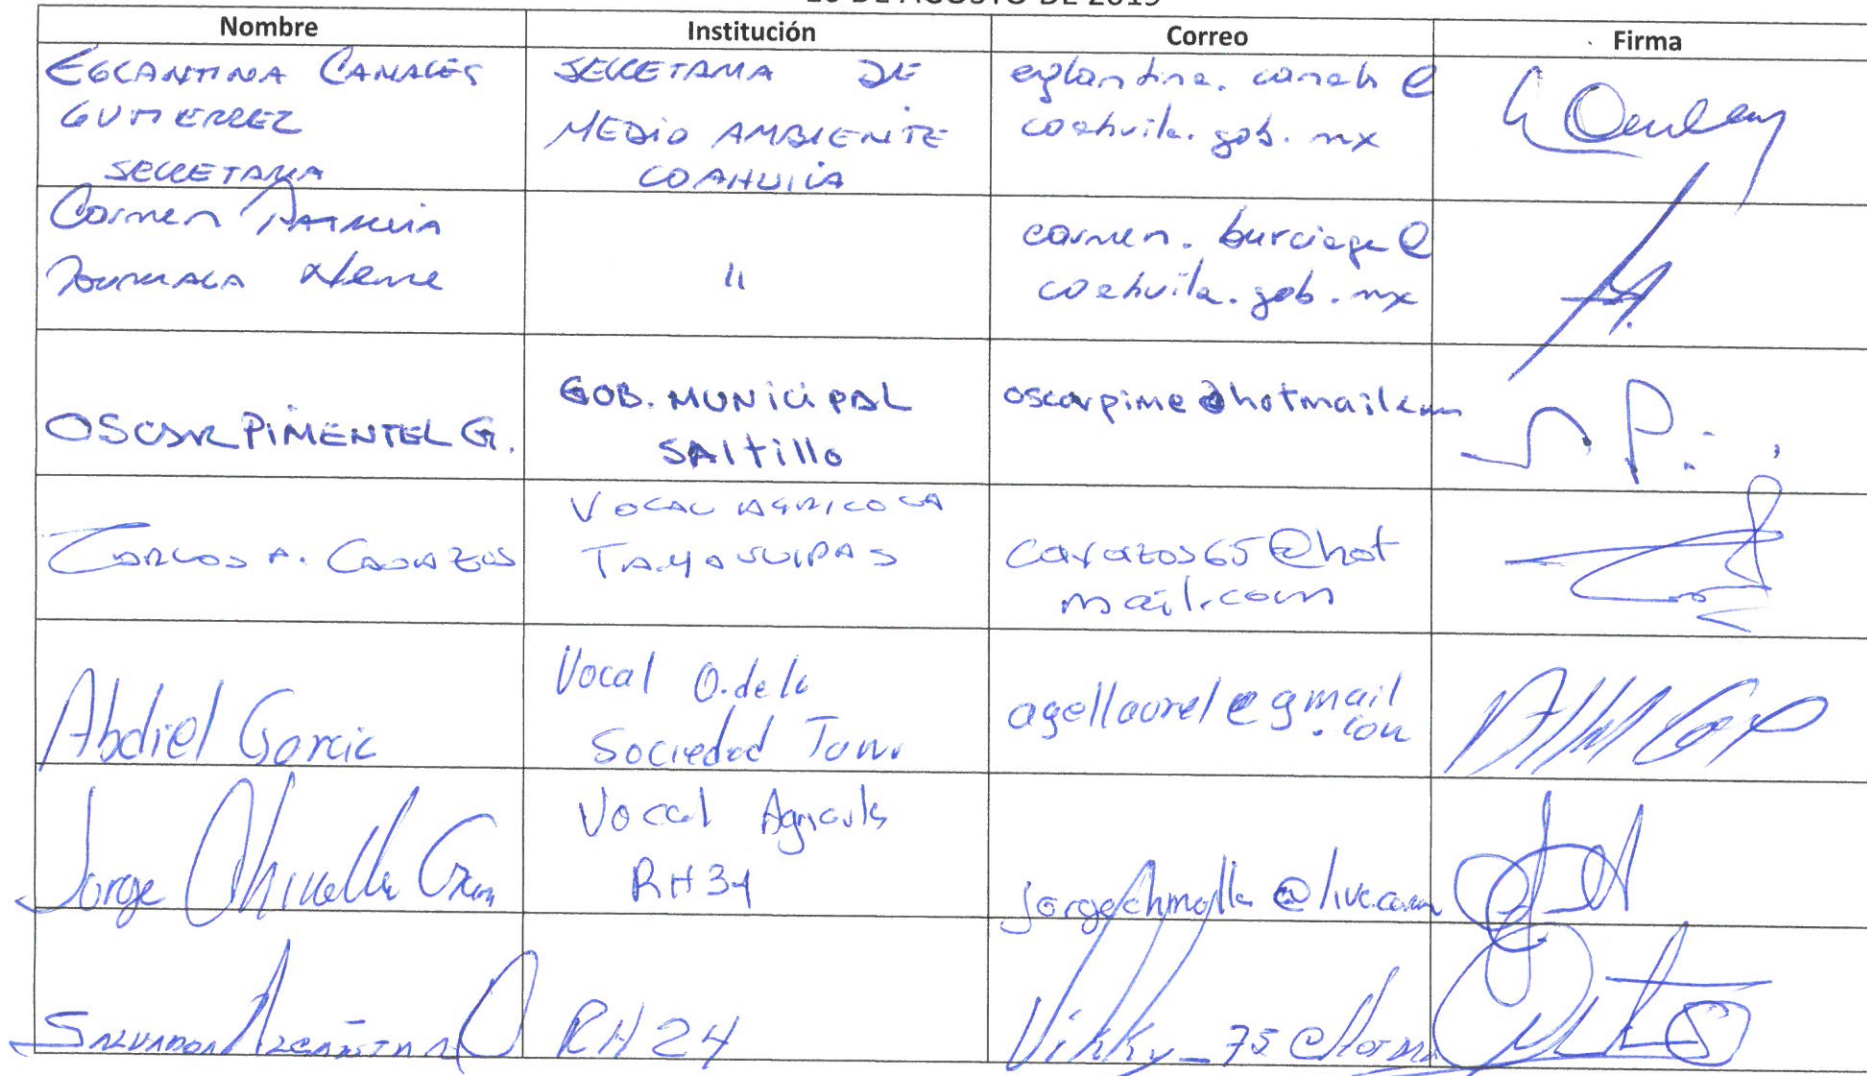 DE AGOSTO DE 2019
Nombre Institución Correo Firma
EGLANTINA CANALES
GUTIERREZ
SECRETARIA
SECRETARIA DE
MEDIO AMBIENTE
COAHUILA
eglantina.canales@
coahuila.gob.mx
Carmen
"
carmen.burciaga@
coahuila.gob.mx
OSCAR PIMENTEL G.
GOB. MUNICIPAL
SALtillo
oscarpime@hotmail.com
CARLOS A. CAVAZOS
VOCAL AGRICOLA
TAMAULIPAS
cavazos65@hot
mail.com
Abdiel Garcia
Vocal O. de la
Sociedad Tam.
agellaurel@gmail
.com
Jorge
Vocal Agricola
RH34
@live.com
SALVADOR
RH24
Vikky_75@